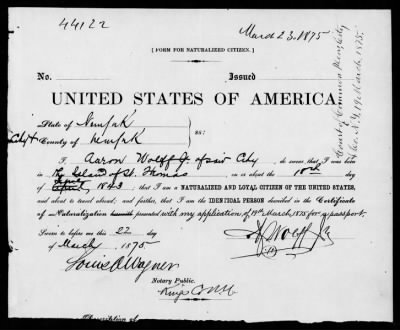 44122
March 23. 1875
[ FORM FOR NATURALIZED CITIZEN. ]
No. Issued
UNITED STATES OF AMERICA.
State of New York
City & County of New York } ss:
I, Aaron Wolff Jr of said City, do swear, that I was born
in the Island of St. Thomas on or about the 10th day
of 1843; that I am a NATURALIZED AND LOYAL CITIZEN OF THE UNITED STATES,
and about to travel abroad; and further, that I am the IDENTICAL PERSON described in the Certificate
of Naturalization presented with my application of 19th March, 1875 for a passport.
Sworn to before me this 22
day
of March 1875.
A Wolff Jr
Louis A. Wagner
Notary Public.
Kings Co N.Y.
Description of
Court of Common Pleas City
& Co. N.Y. 19 March 1875.